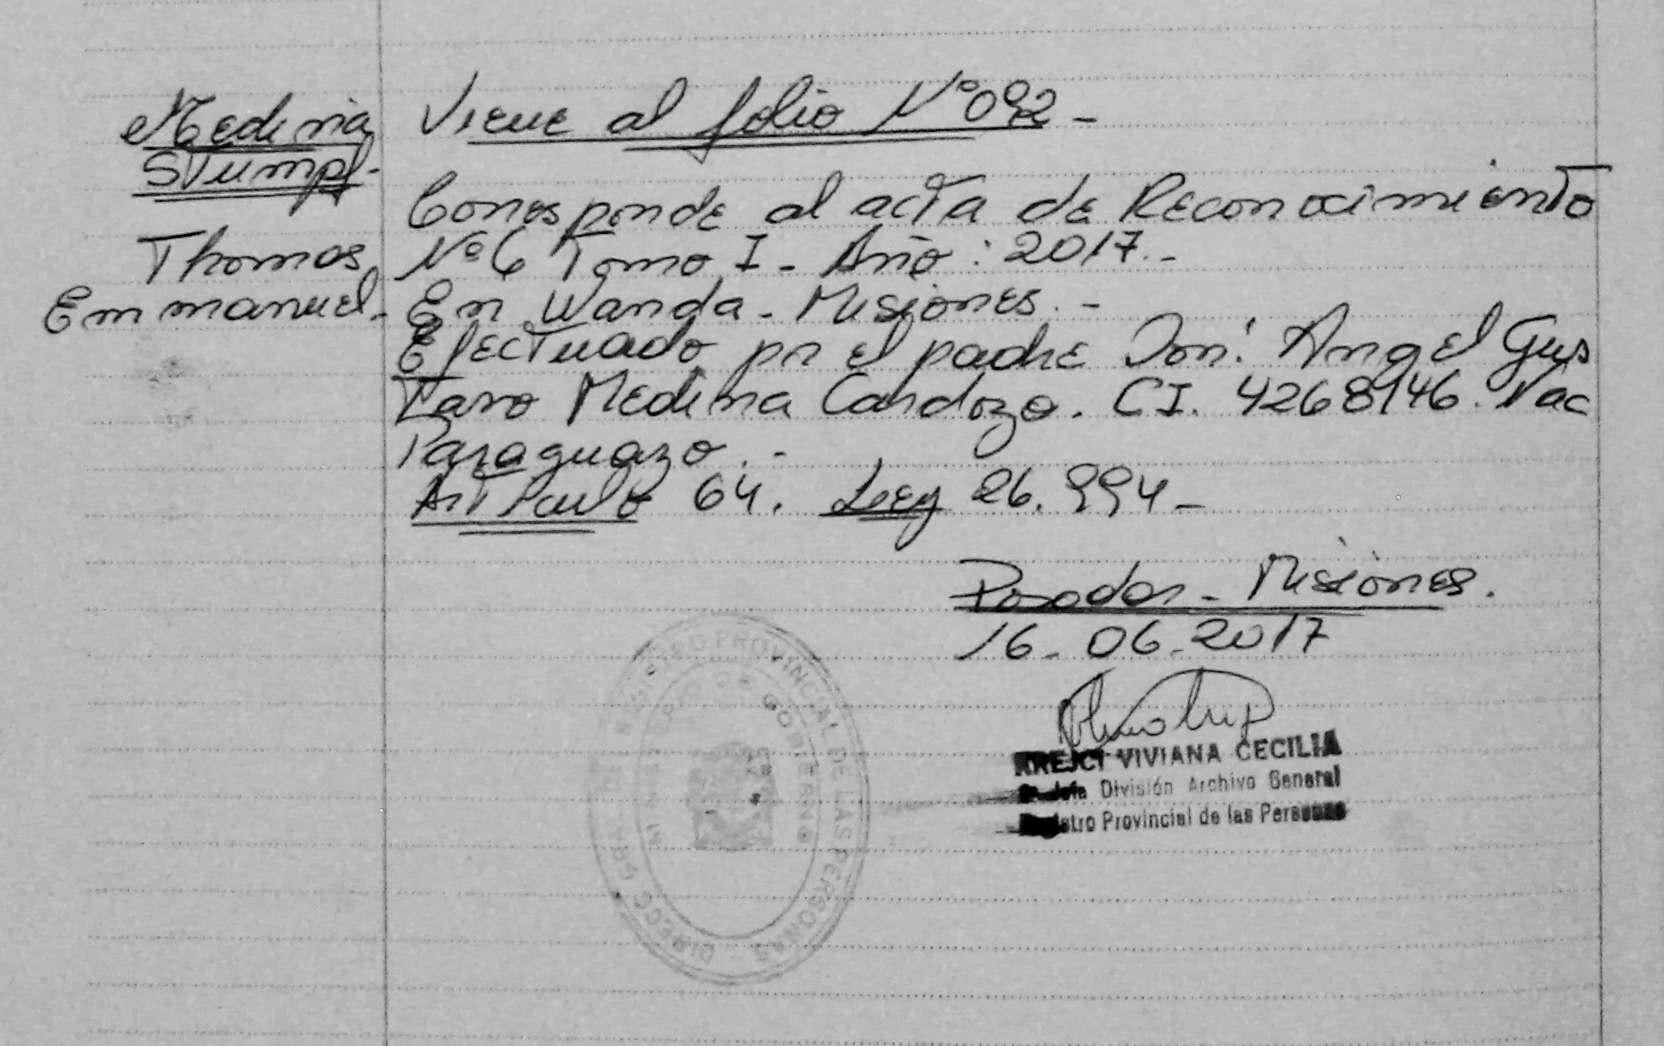 Medina
Stumpf-
Thomas
Emmanuel-
Viene al folio N°092-
Corresponde al acta de Reconocimiento
N°6 Tomo I- Año: 2017.-
En Wanda-Misiones.-
Efectuado por el padre Don: Angel Gus
tavo Medina Cardozo. CI. 4268946. Nac
Paraguayo.-
Artículo 64. Ley 26.994-
Posadas-Misiones.
16-06-2017
KREJCI VIVIANA CECILIA
Jefe División Archivo General
Registro Provincial de las Personas
REGISTRO PROVINCIAL DE LAS PERSONAS
MINISTERIO DE GOBIERNO